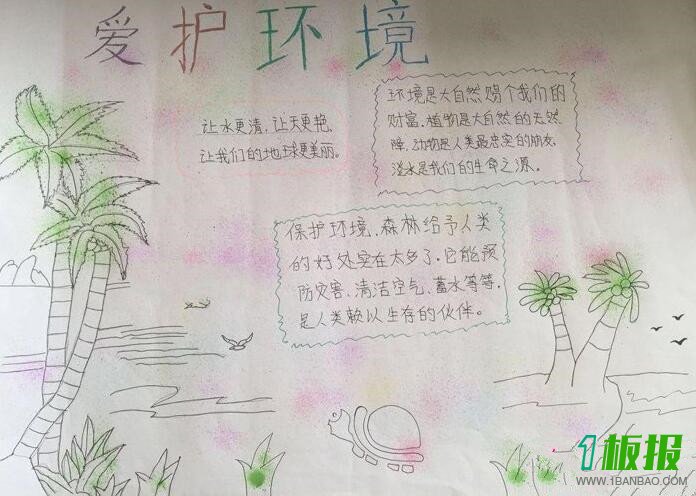 爱护环境
让水更清,让天更艳,
让我们的地球更美丽。
环境是大自然赐个我们的
财富,植物是大自然的天然
障,动物是人类最忠实的朋友,
淡水是我们的生命之源。
保护环境,森林给予人类
的好处实在太多了,它能预
防灾害、清洁空气、蓄水等等,
是人类赖以生存的伙伴。
1板报
WWW.1BANBAO.COM